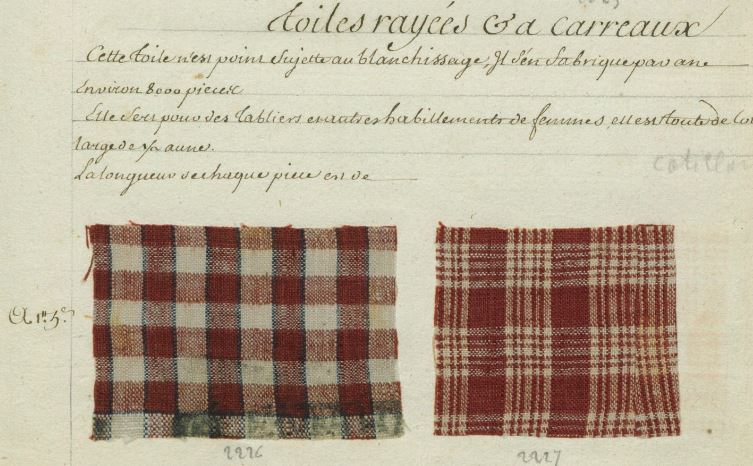 toiles rayées & a carreaux
Cette toile n'est point Sujette au blanchissage, Il s'en fabrique par an
Environ 8000 pieces
Elle Sert pour des Tabliers et autres habillements de femmes, elle est toute de
large de aune.
La longueur de chaque piece est de
2226
2227